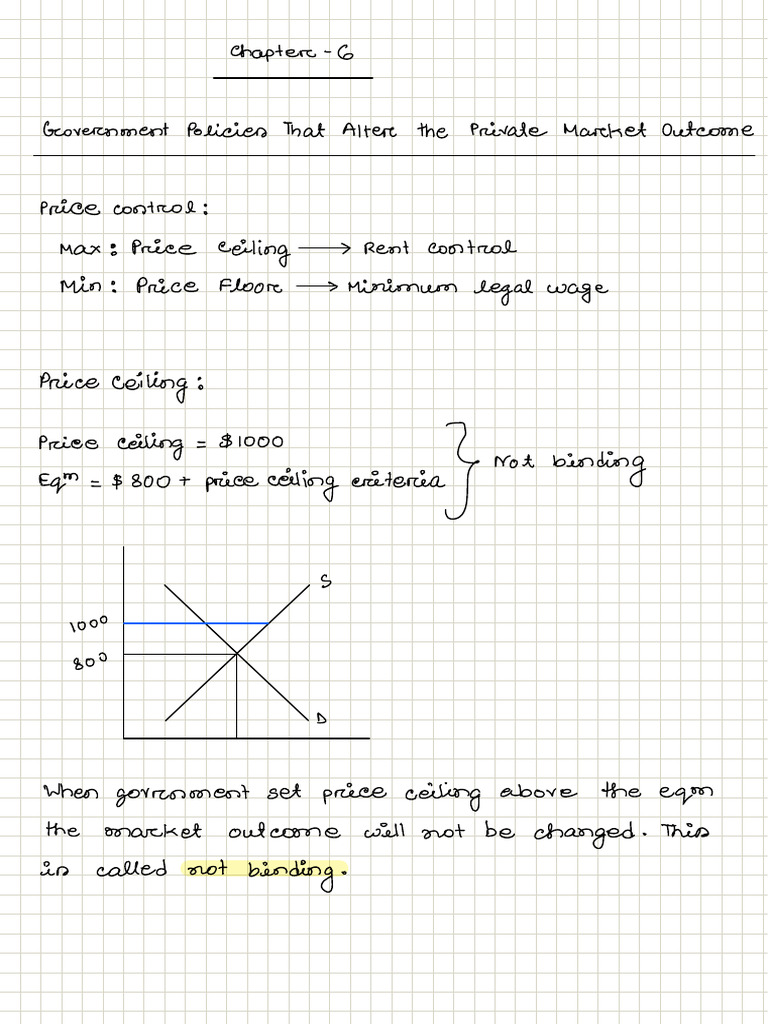 Chapter - 6
Government Policies That Alter the Private Market Outcome
Price control:
Max: Price Ceiling ⟶ Rent control
Min: Price Floor ⟶ Minimum legal wage
Price Ceiling:
Price ceiling = $1000
Eqᵐ = $800 + price ceiling criteria } Not binding
S
1000
800
D
When government set price ceiling above the eqm
the market outcome will not be changed. This
is called not binding.